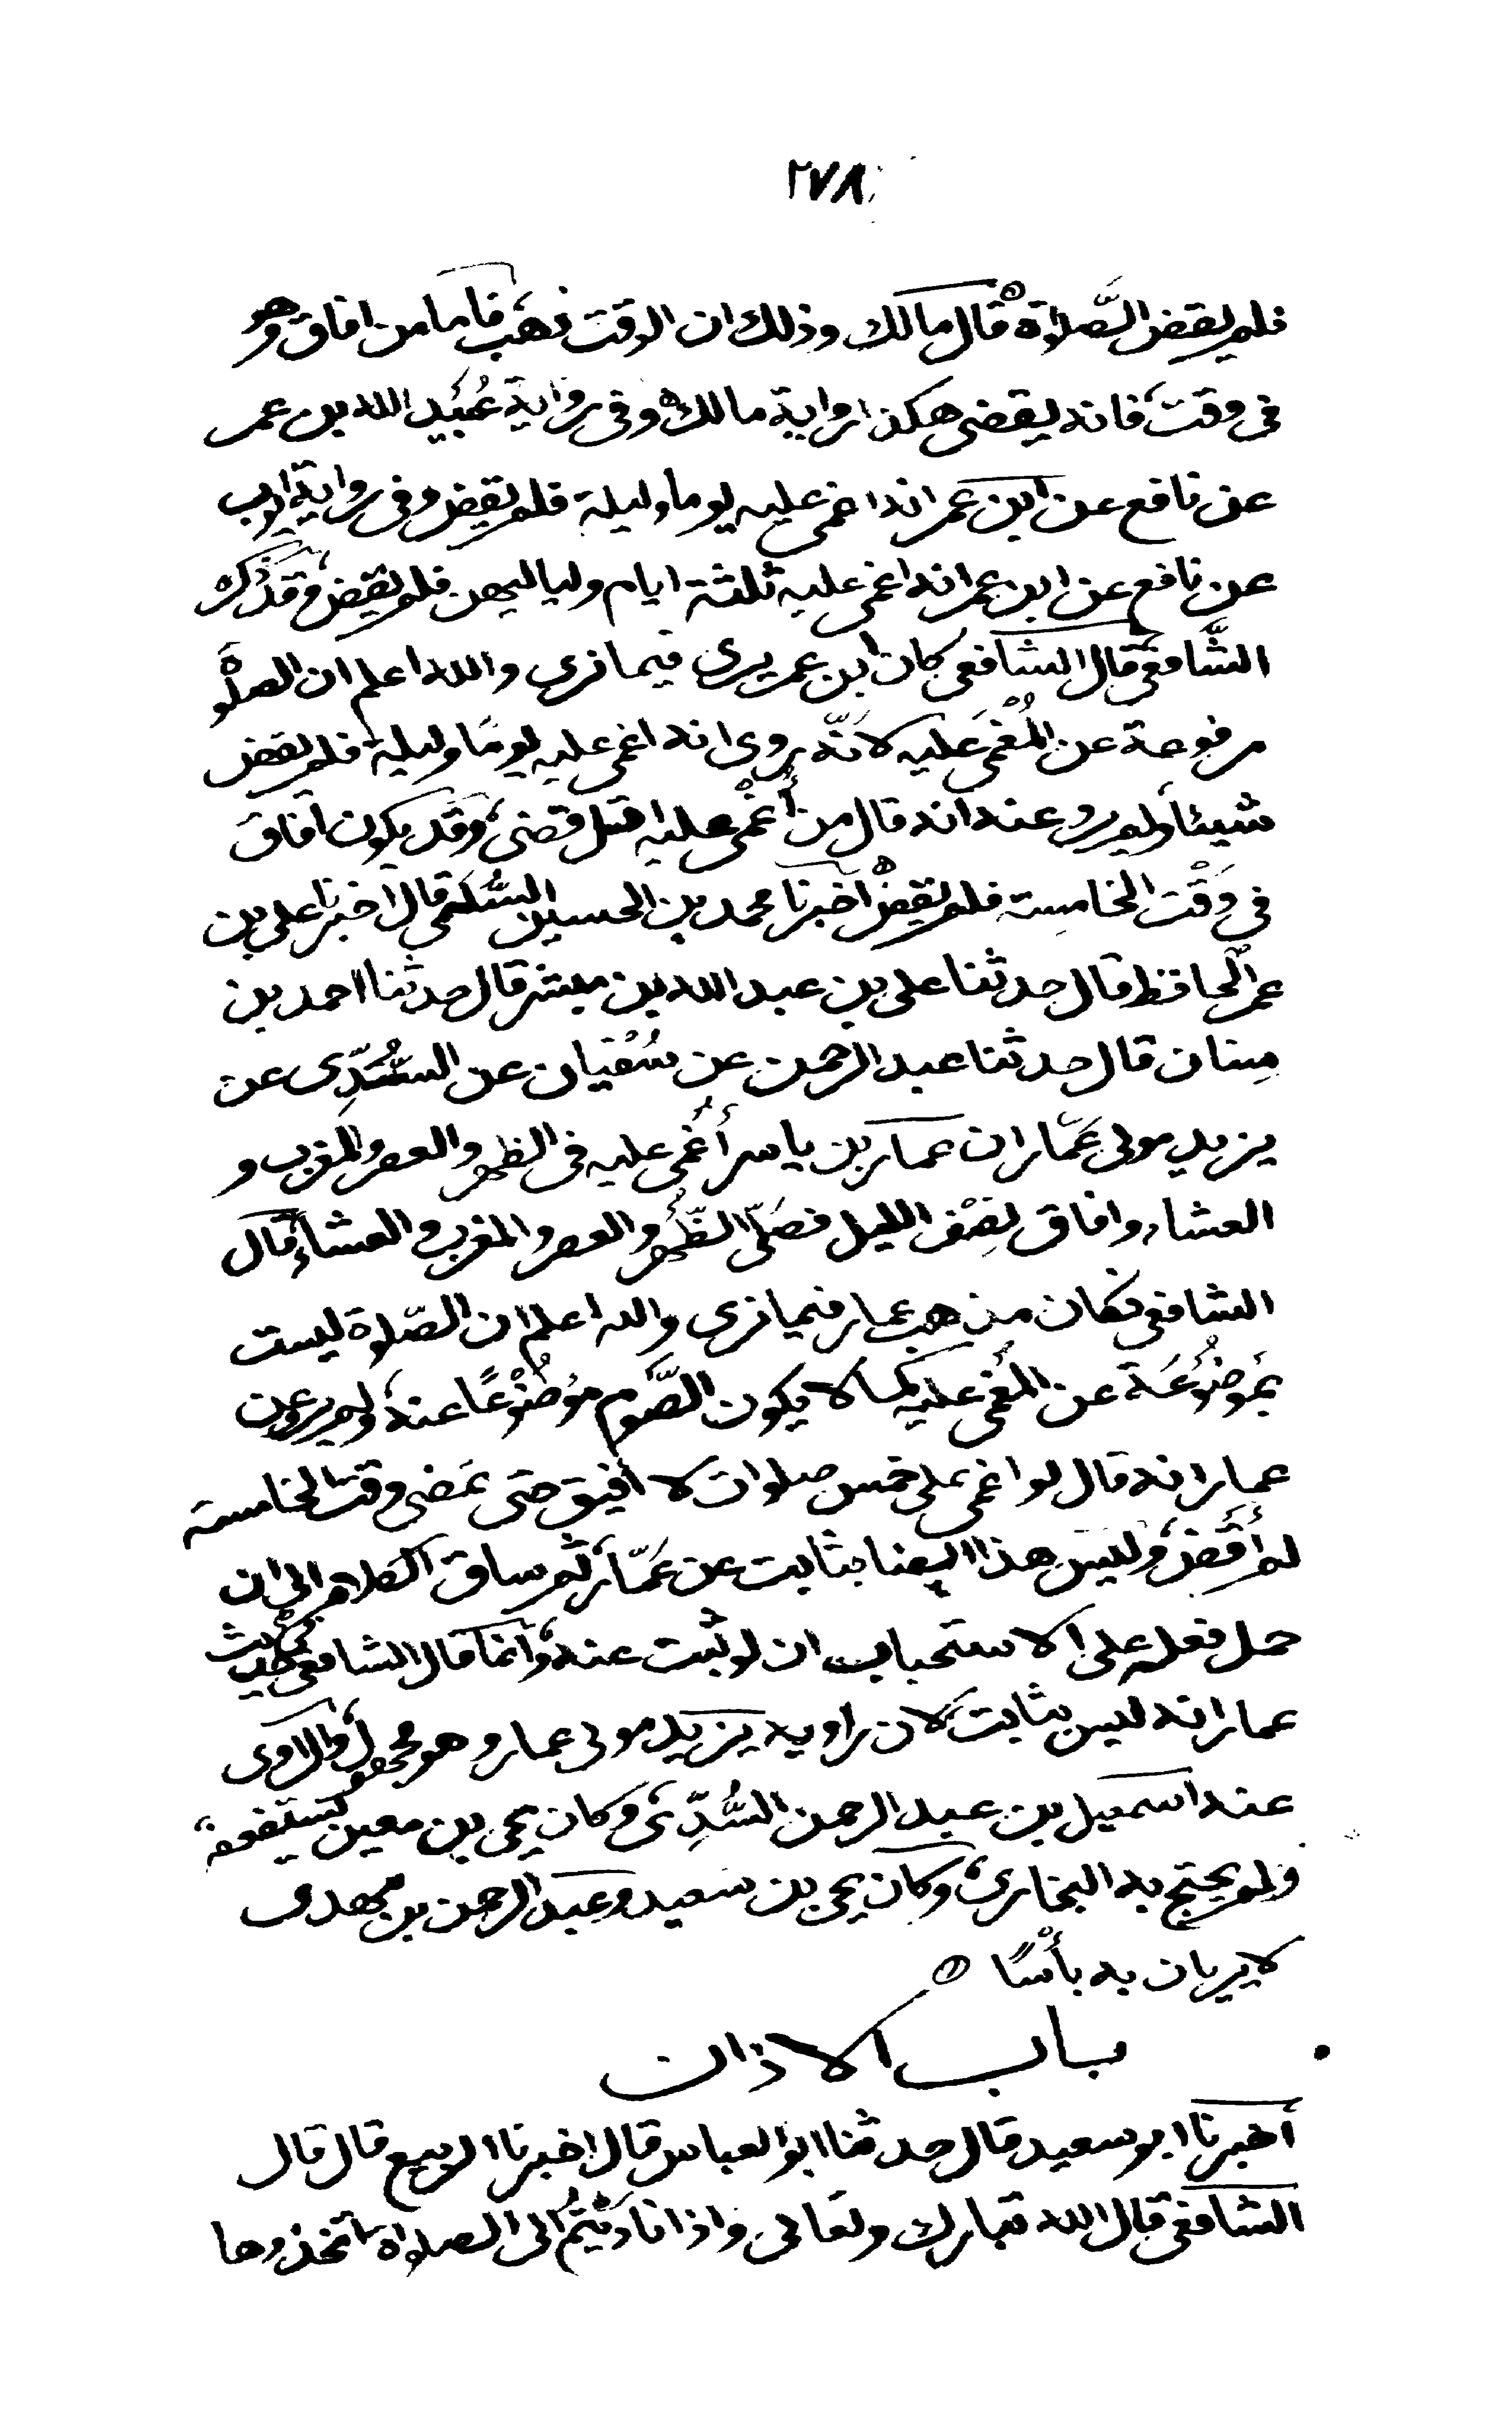 ٢٧٨
فلم يقض الصَّلاة قال مالك وذلك ان الوقت ذهب فاما من افاق وهو
فى وقت فانه يقضى هكذا رواية مالك وفى رواية عُبَيد الله بن عمر
عن نافع عن ابن عمر انه اغمى عليه يوما وليلة فلم يقض وفى رواية ايوب
عن نافع عن ابن عمر انه اغمى عليه ثلثة ايام ولياليهن فلم يقض وقد ذكره
الشَّافعى قال الشافعى كان ابن عمر يرى فيما نرى والله اعلم ان الصلوة
مرفوعة عن المُغْمَى عَليه لأنّه روى انه اغمى عليه يومًا وليلة فلم يقض
شيئًا ولم يرو عنه انه قال من أُغْمى عليه اقل قضى وقد يكون افاقَ
فى وَقْت الخامِسة فلم يقضْ اخبرنا محمد بن الحسين السُّلَمى قال اخبرنا على بن
عمر الحافظ قال حدثنا على بن عبد الله بن مبشر قال حدثنا احمد بن
سِنان قال حدثنا عبد الرحمن عن سُفْيان عن السُّدِّى عن
يزيد مولى عَمّار ان عمار بن ياسر أُغْمى عليه فى الظهر والعصر والمغرب و
العشاء وافاق نِصْف الليل فصَلّى الظُّهر والعصر والمغرب والعشاء قال
الشافعى فكان مذهب عمار فيما نرى والله اعلم ان الصّلاة ليست
بمَوضُوعَة عن المُغْمى عليه كما لا يكون الصَّوم موْضُوْعًا عنه ولم يرو عن
عمار انه قال لو اغمى على خمس صلوات لا افيق حتى يَمضى وقت الخامسة
لم أَقْضِ وليسَ هذا ايضا بثابت عن عَمّار ثم ساق الكلام الى ان
حمل فعله على الاستحباب ان لو ثبت عنه وانما قال الشافعى فى حديث
عمار انه ليس بثابت لان راويه يزيد مولى عمار وهو مجهول والراوى
عنه اسمعيل بن عبد الرحمن السُّدِّى وكان يحيى بن معين يستضعفه
ولم يحتج به البخارى وكان يحيى بن سعيد وعبد الرحمن بن مهدى
لا يريان به بأْسًا
باب الاذان
أخبرنا ابو سعيد قال حدثنا ابو العباس قال اخبرنا الربيع قال قال
الشافعى قال الله تبارك وتعالى واذا نادَيْتُم الى الصلاة اتخذوها